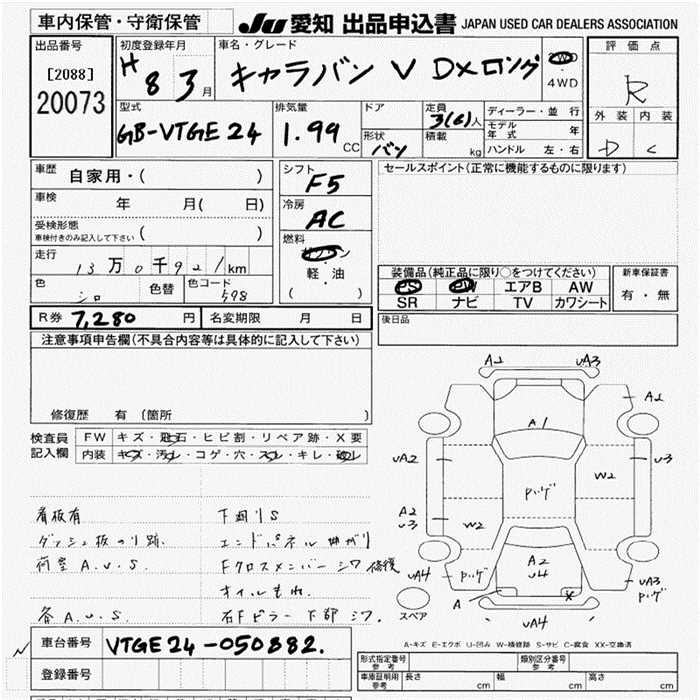 車内保管・守衛保管
JU 愛知 出品申込書 JAPAN USED CAR DEALERS ASSOCIATION
出品番号
[2088]
20073
初度登録年月
H 8 3 月
車名・グレード
キャラバン V DXロング
2WD
・
4WD
評価点
R
外装 内装
D C
型式
GB-VTGE24
排気量
1.99 CC
ドア
形状
バン
定員
3(6)人
積載
kg
ディーラー・並行
モデル年式 年
ハンドル 左・右
車歴
自家用・( )
車検 年 月( 日)
受検形態
車検付きのみ記入して下さい ( )
走行
13万0千921km
色
シロ
色替
色コード
598
シフト
F5
冷房
AC
燃料
ガソリン
・
軽・油
( )
セールスポイント(正常に機能するものに限ります)
装備品(純正品に限り○をつけてください)
PS PW エアB AW
SR ナビ TV カワシート
新車保証書
有・無
R券 7,280 円
名変期限 月 日
後日品
注意事項申告欄(不具合内容等は具体的に記入して下さい)
修復歴 有 (箇所 )
検査員
記入欄
FW キズ・飛石・ヒビ割・リペア跡・X要
内装 キズ・汚レ・コゲ・穴・スレ・キレ・破レ
看板有
ダッシュ板のり跡
荷室A.U.S.
各A.U.S.
下廻りS
エンドパネル曲がり
Fクロスメンバーシワ修復
オイルもれ.
右Fピラー下部シワ.
A2
UA3
A2
A1
UA2
A2
U3
W2
Pハゲ
W2
U3
A2
U4
UA4
Pハゲ
A
X
Pハゲ
UA3
UA4
スペア
A-キズ E-エクボ U-凹み W-補修跡 S-サビ C-腐食 XX-交換済
車台番号 VTGE24-050882.
登録番号
形式指定番号
参考
類別区分番号
参考
車庫証明用
参考
長さ cm 幅 cm 高さ cm